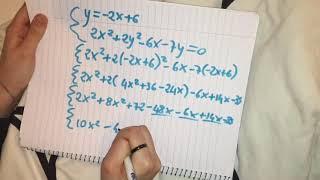 y=-2x+6
2x²+2y²-6x-7y=0
2x²+2(-2x+6)²-6x-7(-2x+6)
2x²+2(4x²+36-24x)-6x+14x-
2x²+8x²+72-48x-6x+14x-
10x²-4